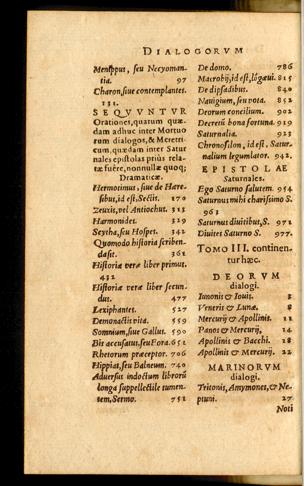 DIALOGORVM
Menippus, seu Necyoman-
tia. 97
Charon, siue contemplantes.
131.
SEQVVNTVR
Orationes, quatum quæ-
dam adhuc inter Mortuo
rum dialogos, & Meretri
cum, quædam inter Satur
nales epistolas prius rela-
tæ fuêre, nonnullæ quoq;
Dramaticæ.
Hermotimus, siue de Hære-
sibus, id est, Sectis. 170
Zeuxis, vel Antiochus. 313
Harmonides. 329
Scytha, seu Hospes. 342
Quomodo historia scriben-
da sit. 361
Historiæ veræ liber primus.
432
Historiæ veræ liber secun-
dus. 477
Lexiphantes. 527
Demonactis vita. 550
Somnium, siue Gallus. 590
Bis accusatus, seu Fora. 651
Rhetorum præceptor. 706
Hippias, seu Balneum. 740
Aduersus indoctum librorũ
longa suppellectile tumen-
tem, Sermo. 751
De domo. 786
Macrobij, id est, lõgæui. 815
De dipsadibus. 840
Nauigium, seu vota. 852
Deorum concilium. 902
Decreti bona fortuna. 919
Saturnalia. 923
Chronosolon, id est, Satur-
nalium legumlator. 942.
EPISTOLAE
Saturnales.
Ego Saturno salutem. 954
Saturnus mihi charissimo S.
963
Saturnus diuitibus, S. 971
Diuites Saturno S. 977.
TOMO III. continen-
tur hæc.
DEORVM
dialogi.
Iunonis & Iouis. 8
Veneris & Lunæ. 8
Mercurij & Apollinis. 12
Panos & Mercurij. 14
Apollinis & Bacchi. 18
Apollinis & Mercurij. 22
MARINORVM
dialogi.
Tritonis, Amymones, & Ne-
ptuni. 27
Noti